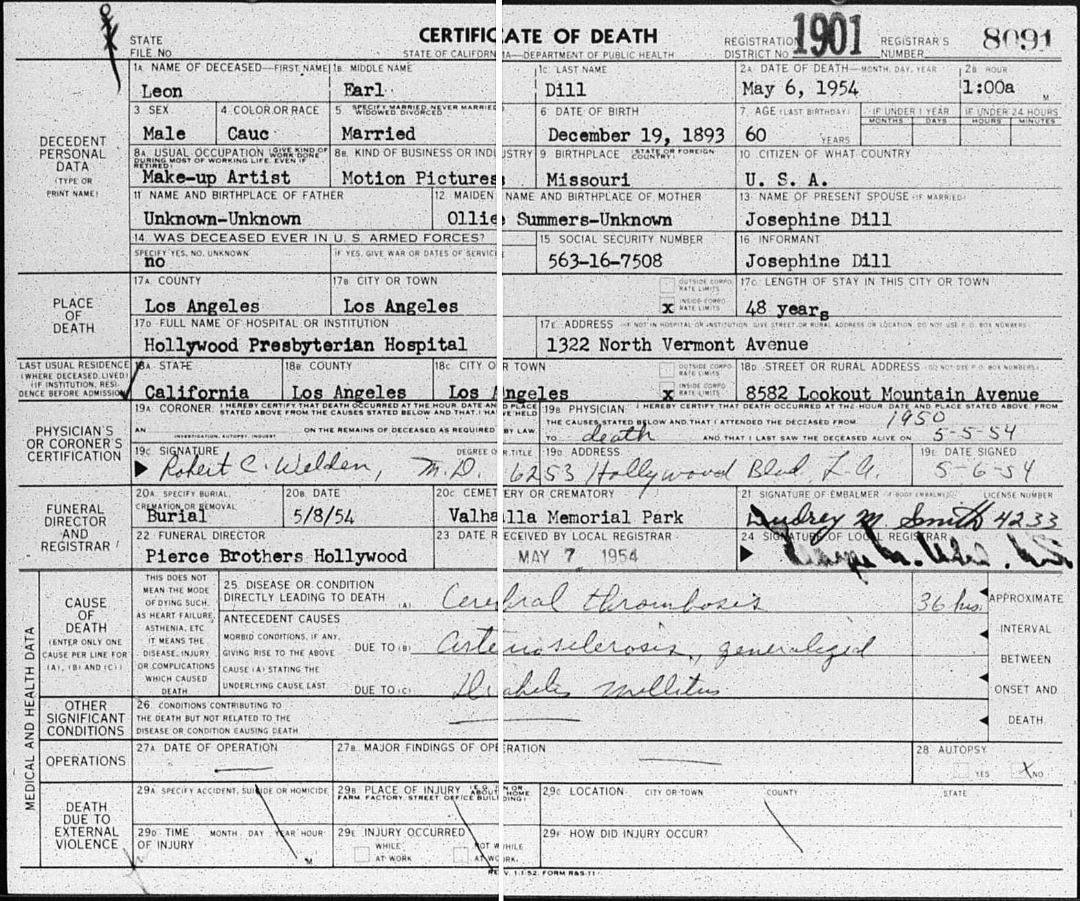 STATE FILE NO
CERTIFICATE OF DEATH
STATE OF CALIFORNIA—DEPARTMENT OF PUBLIC HEALTH
REGISTRATION DISTRICT NO 1901
REGISTRAR'S NUMBER 8091
DECEDENT PERSONAL DATA (TYPE OR PRINT NAME)
1A. NAME OF DECEASED—FIRST NAME 1B. MIDDLE NAME 1C. LAST NAME 2A DATE OF DEATH—MONTH, DAY, YEAR 2B HOUR
Leon Earl Dill May 6, 1954 1:00a M
3 SEX 4. COLOR OR RACE 5. SPECIFY MARRIED, NEVER MARRIED, WIDOWED, DIVORCED 6 DATE OF BIRTH 7. AGE (LAST BIRTHDAY) IF UNDER 1 YEAR IF UNDER 24 HOURS
MONTHS DAYS HOURS MINUTES
Male Cauc Married December 19, 1893 60 YEARS
8A. USUAL OCCUPATION (GIVE KIND OF WORK DONE DURING MOST OF WORKING LIFE, EVEN IF RETIRED) 8B. KIND OF BUSINESS OR INDUSTRY 9 BIRTHPLACE (STATE OR FOREIGN COUNTRY) 10 CITIZEN OF WHAT COUNTRY
Make-up Artist Motion Pictures Missouri U. S. A.
11 NAME AND BIRTHPLACE OF FATHER 12 MAIDEN NAME AND BIRTHPLACE OF MOTHER 13. NAME OF PRESENT SPOUSE (IF MARRIED)
Unknown-Unknown Ollie Summers-Unknown Josephine Dill
14. WAS DECEASED EVER IN U. S. ARMED FORCES? 15. SOCIAL SECURITY NUMBER 16 INFORMANT
SPECIFY YES, NO, UNKNOWN IF YES, GIVE WAR OR DATES OF SERVICE
no 563-16-7508 Josephine Dill
PLACE OF DEATH
17A. COUNTY 17B CITY OR TOWN OUTSIDE CORPO RATE LIMITS 17C. LENGTH OF STAY IN THIS CITY OR TOWN
Los Angeles Los Angeles x INSIDE CORPO RATE LIMITS 48 years
17D FULL NAME OF HOSPITAL OR INSTITUTION 17E. ADDRESS (IF NOT IN HOSPITAL OR INSTITUTION GIVE STREET OR RURAL ADDRESS OR LOCATION. DO NOT USE P. O. BOX NUMBERS)
Hollywood Presbyterian Hospital 1322 North Vermont Avenue
LAST USUAL RESIDENCE (WHERE DECEASED LIVED) (IF INSTITUTION, RESIDENCE BEFORE ADMISSION)
18A. STATE 18B. COUNTY 18C CITY OR TOWN OUTSIDE CORPO RATE LIMITS 18D STREET OR RURAL ADDRESS (DO NOT USE P.O. BOX NUMBERS)
California Los Angeles Los Angeles x INSIDE CORPO RATE LIMITS 8582 Lookout Mountain Avenue
PHYSICIAN'S OR CORONER'S CERTIFICATION
19A CORONER I HEREBY CERTIFY THAT DEATH OCCURRED AT THE HOUR DATE AND PLACE STATED ABOVE FROM THE CAUSES STATED BELOW AND THAT I HAVE HELD
AN INVESTIGATION, AUTOPSY, INQUEST ON THE REMAINS OF DECEASED AS REQUIRED BY LAW.
19B PHYSICIAN. I HEREBY CERTIFY THAT DEATH OCCURRED AT THE HOUR DATE AND PLACE STATED ABOVE, FROM
THE CAUSES STATED BELOW AND THAT I ATTENDED THE DECEASED FROM 1950
TO death AND THAT I LAST SAW THE DECEASED ALIVE ON 5-5-54
19C SIGNATURE DEGREE OR TITLE 19D ADDRESS 19E DATE SIGNED
Robert C. Welden, M.D. 6253 Hollywood Blvd. L.A. 5-6-54
FUNERAL DIRECTOR AND REGISTRAR
20A. SPECIFY BURIAL, CREMATION OR REMOVAL 20B. DATE 20C CEMETERY OR CREMATORY 21 SIGNATURE OF EMBALMER (IF BODY EMBALMED) LICENSE NUMBER
Burial 5/8/54 Valhalla Memorial Park Audrey M. Smith 4233
22 FUNERAL DIRECTOR 23 DATE RECEIVED BY LOCAL REGISTRAR 24 SIGNATURE OF LOCAL REGISTRAR
Pierce Brothers Hollywood MAY 7 1954
MEDICAL AND HEALTH DATA
CAUSE OF DEATH (ENTER ONLY ONE CAUSE PER LINE FOR (A), (B) AND (C))
THIS DOES NOT MEAN THE MODE OF DYING SUCH AS HEART FAILURE, ASTHENIA, ETC IT MEANS THE DISEASE, INJURY OR COMPLICATIONS WHICH CAUSED DEATH
25. DISEASE OR CONDITION DIRECTLY LEADING TO DEATH (A) Cerebral thrombosis 36 hrs.
ANTECEDENT CAUSES
MORBID CONDITIONS, IF ANY, GIVING RISE TO THE ABOVE CAUSE (A) STATING THE UNDERLYING CAUSE LAST
DUE TO (B) Arteriosclerosis, generalized
DUE TO (C) Diabetes mellitus
APPROXIMATE INTERVAL BETWEEN ONSET AND DEATH
OTHER SIGNIFICANT CONDITIONS
26. CONDITIONS CONTRIBUTING TO THE DEATH BUT NOT RELATED TO THE DISEASE OR CONDITION CAUSING DEATH
OPERATIONS
27A. DATE OF OPERATION 27B. MAJOR FINDINGS OF OPERATION 28 AUTOPSY
YES X NO
DEATH DUE TO EXTERNAL VIOLENCE
29A. SPECIFY ACCIDENT, SUICIDE OR HOMICIDE 29B PLACE OF INJURY (E.G. IN OR ABOUT HOME FARM, FACTORY, STREET OFFICE BUILDING) 29C. LOCATION CITY OR TOWN COUNTY STATE
29D TIME OF INJURY MONTH, DAY YEAR HOUR M 29E INJURY OCCURRED WHILE AT WORK NOT WHILE AT WORK 29F HOW DID INJURY OCCUR?
REV. 1.1.52. FORM R&S-11